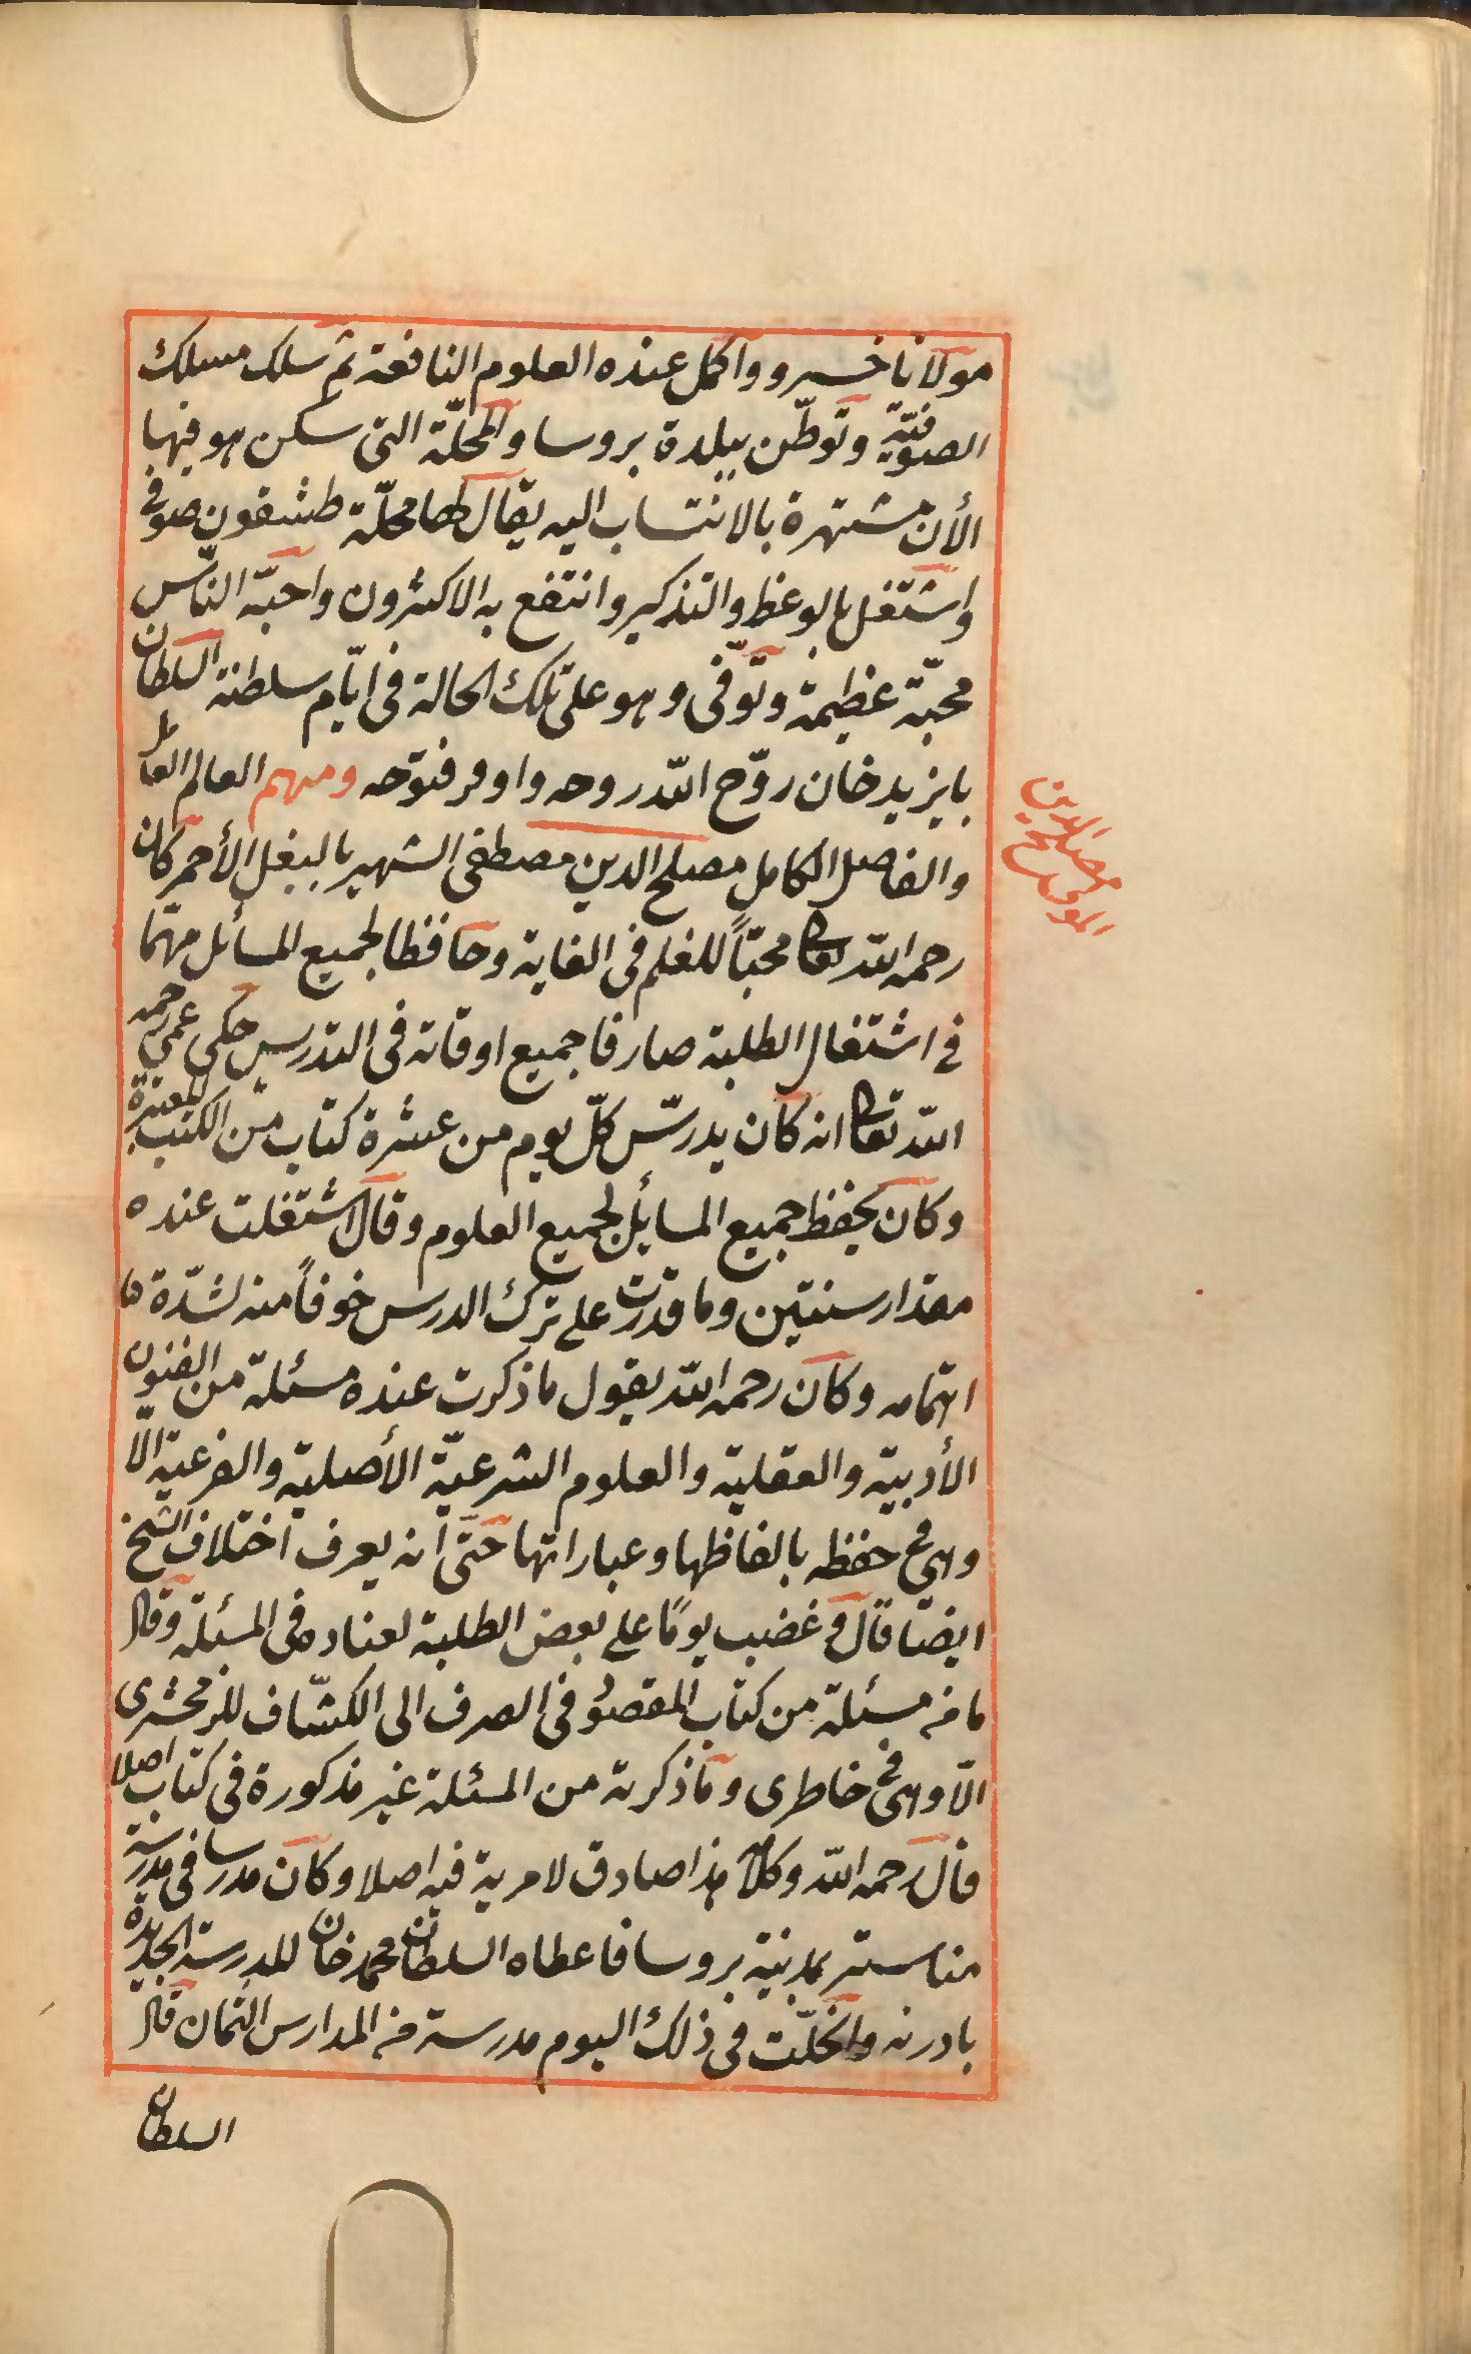 مولانا خسرو واكمل عنده العلوم النافعة ثم سلك مسلك
الصوفية وتوطّن ببلدة بروسا والمحلّة التى سكن هو فيها
الأن مشتهرة بالانتساب اليه يقال لها محلّة طشغون صوفى
واشتغل بالوعظ والتذكير وانتفع به الاكثرون واحبّه الناس
محبّة عظيمة وتوّفى وهو على تلك الحالة فى ايّام سلطنة السلطان
بايزيد خان روّح اللّه روحه واوفر فتوّحه ومنهم العالم العامل
والفاضل الكامل مصلح الدين مصطفى الشهير بالبغل الأحمر كان
رحمه اللّه تعالى محبّاً للعلم فى الغاية وحافظا لجميع المسائل مهتما
فى اشتغال الطلبة صارفا جميع اوقاته فى التدريس حكى عمى رحمه
اللّه تعالى انه كان يدرّس كلّ يوم من عشرة كتاب من الكتب المعتبرة
وكان يحفظ جميع المسائل لجميع العلوم وقال اشتغلت عنده
مقدار سنتين وما قدرت على ترك الدرس خوفاً منه لشدّة
اهتمامه وكان رحمه اللّه يقول ما ذكرت عنده مسئلة من الفنون
الأدبية والعقلية والعلوم الشرعيّة الأصلية والفرعية الّا
وهى فى حفظه بالفاظها وعباراتها حتى انه يعرف اختلاف النسخ
ايضا قال وغضب يومًا على بعض الطلبة لعناده فى المسئلة وقال
ما من مسئلة من كتاب المقصود فى الصرف الى الكشّاف للزمخشرى
الّا وهى فى خاطرى وما ذكرته من المسئلة غير مذكورة فى كتاب اصلا
قال رحمه اللّه وكلامه هذا صادق لا مرية فيه اصلا وكان مدرسا فى مدرسة
مناستر بمدينة بروسا فاعطاه السلطان محمد خان المدرسة الجديدة
بادرنه وانحلّت فى ذلك اليوم مدرسة من المدارس الثمان قال
السلطان
المولى مصلح الدين